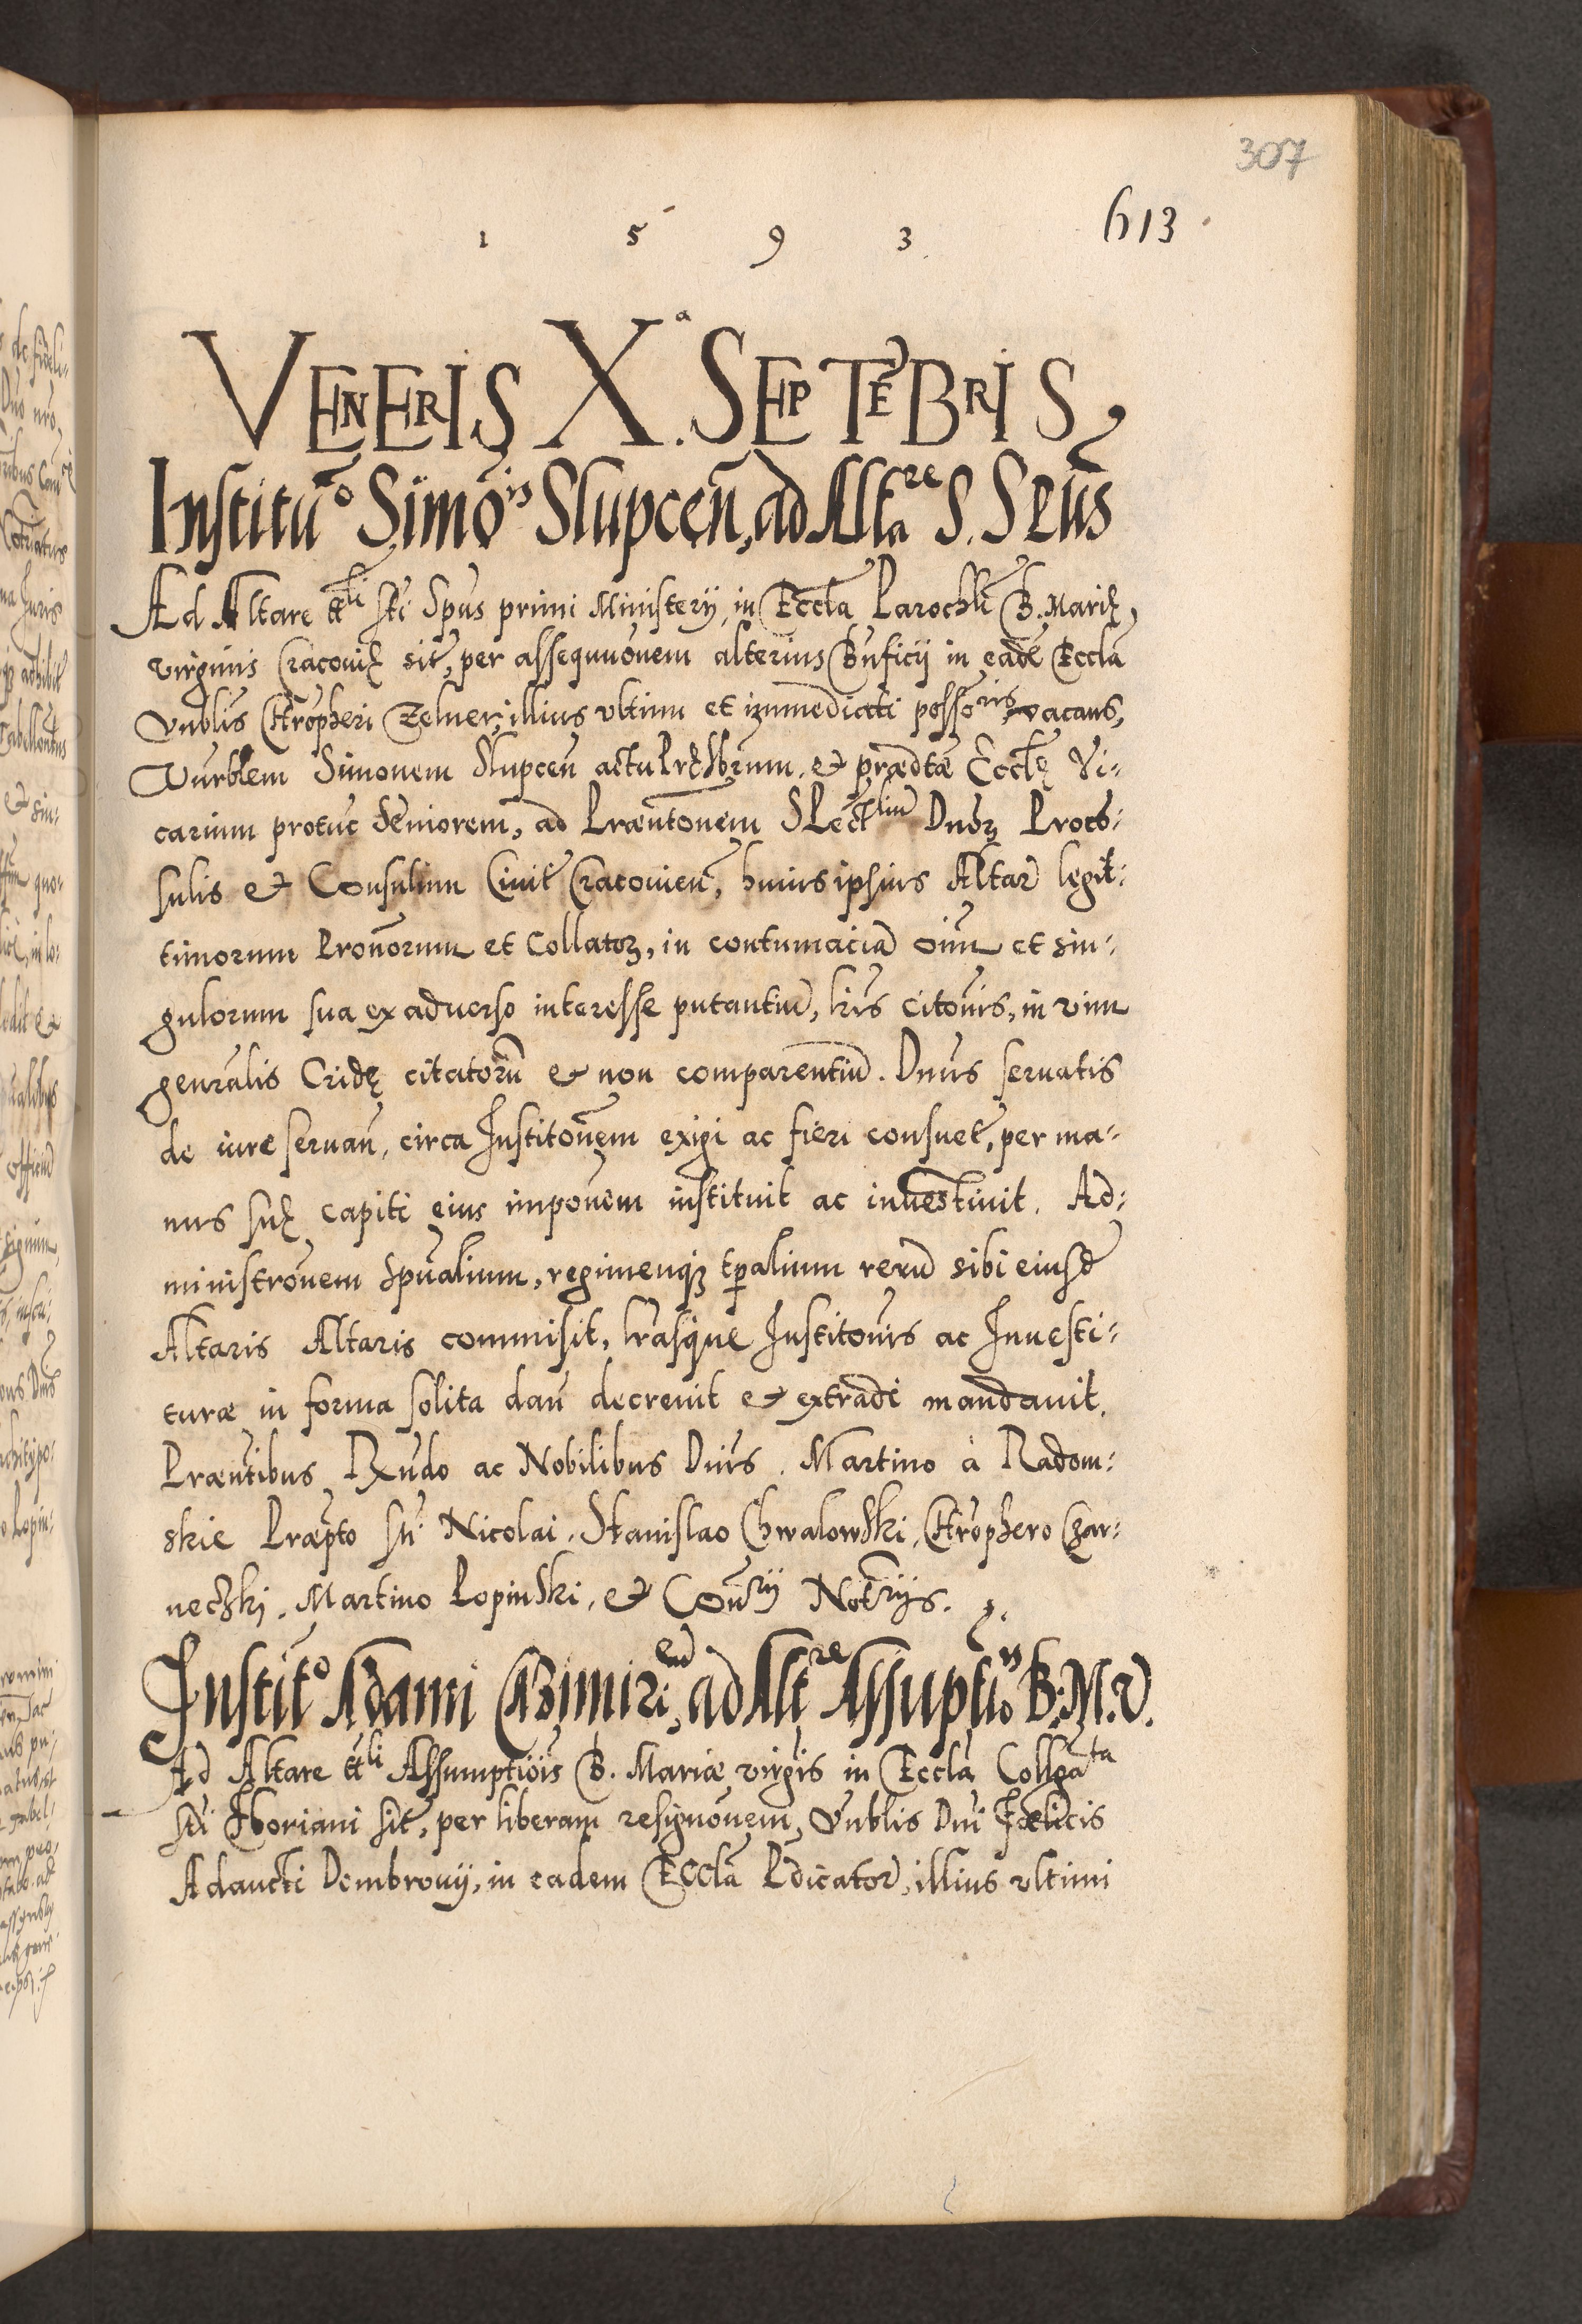 307
613
1 5 9 3
VENERIS X.ª SEPTĒBRIS
Institūo Simōis Slupceñ, ad Altare S. Spūs
Ad Altare ttli Sti Spūs primi Ministerij, in Eccla Parochli B. Marię
virginis Cracovię sit̄, per assequuōnem alterius Bn̄ficij in eadē Eccla
Vn̄blis Chrōpheri Zelner, illius vltimi et immediati possōris vacans,
Vūrblem Simonem Slupceñ actu Prēsbrum, et prædtæ Ecclę Vi-
carium protūc Seniorem, ad Præntōnem SPectliū Dn̄or̨ Procō-
sulis et Consulum Civit̄ Cracovieñ, huius ipsius Altar̄ legit-
timorum Pronōrum et Collator̨, in contumaciā oīm et sin-
gulorum sua ex adverso interesse putantiū, lris citōnis, in vim
genrālis Cridę citatorū et non comparentiū. Dnūs servatis
de iure servan̄, circa Institōnem exigi ac fieri consuet̄, per ma-
nus suę capiti eius impōnem instituit ac investivit. Ad-
ministrōnem Spūalium, regimenq̨ tpaliūm rerū sibi eiusd̄
Altaris Altaris commisit, lrasque Institōnis ac Investi-
turæ in forma solita dan̄ decrevit et extradi mandavit.
Præntibus Rxn̄do ac Nobilibus Dnīs. Martino à Radom-
skie Præpto Sti Nicolai, Stanislao Chwalowski, Chrōphero Czar-
neczki, Martino Lopinski, et Coūrij Notrijs.
Instit̄o Adami Cazimiriēn, ad Altre Assuptiōis B. M. V.
Ad Altare ttli Assumptiōis B. Mariæ virgīs in Eccla Collgata
Sti Floriani sit̄, per liberam resignōnem, Vn̄blis Dni Fœlicis
Adaucti Dombrovij, in eadem Eccla Pdicator̄, illius vltimi